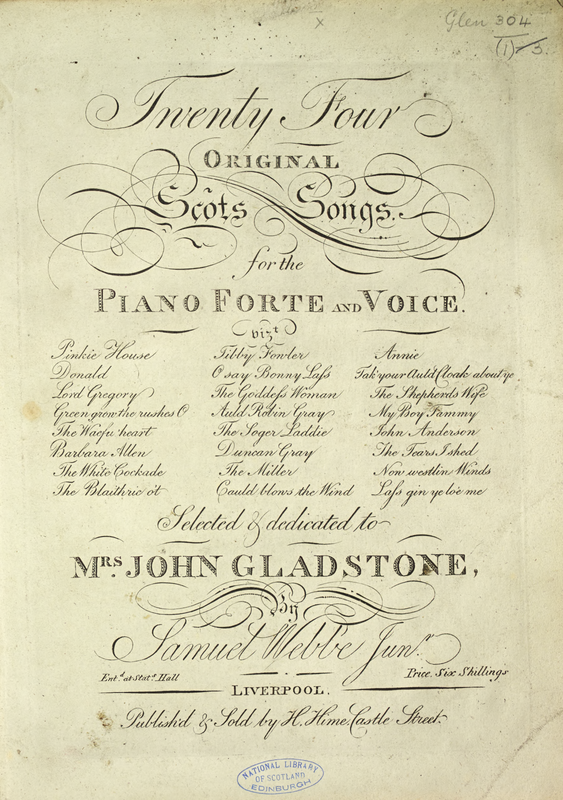 Glen 304
(1)-3.
Twenty Four
ORIGINAL
Scôts Songs.
for the
PIANO FORTE AND VOICE.
vizt
Pinkie House
Donald
Lord Gregory
Green grow the rushes O
The Waefu heart
Barbara Allen
The White Cockade
The Blaithrie o't
Tibby Fowler
O say Bonny Lass
The Goddess Woman
Auld Robin Gray
The Soger Laddie
Duncan Gray
The Miller
Cauld blows the Wind
Annie
Tak your Auld Cloak about ye
The Shepherds Wife
My Boy Tammy
John Anderson
The Tears I shed
Now westlin Winds
Lass gin ye lo'e me
Selected & dedicated to
MRS. JOHN GLADSTONE,
By
Samuel Webbe Junr.
Entd. at Stats. Hall
Price. Six Shillings
LIVERPOOL.
Publish'd & Sold by H. Hime. Castle Street.
NATIONAL LIBRARY
OF SCOTLAND
EDINBURGH